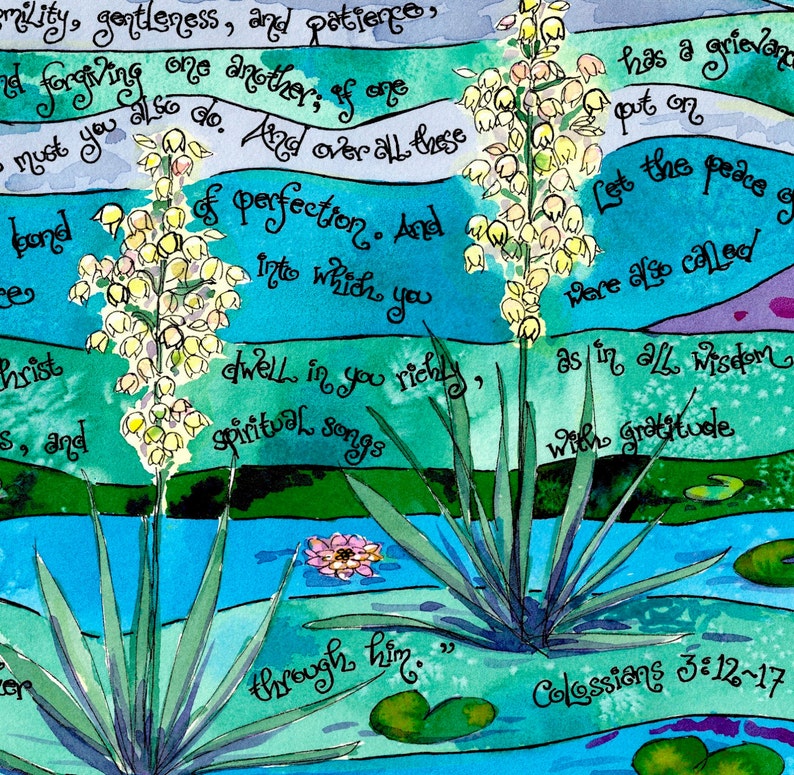 humility, gentleness, and patience,
and forgiving one another; if one has a grievance
must you also do. And over all these put on
bond of perfection. And Let the peace of
into which you were also called
Christ dwell in you richly, as in all wisdom
and spiritual songs with gratitude
through him."
Colossians 3:12~17